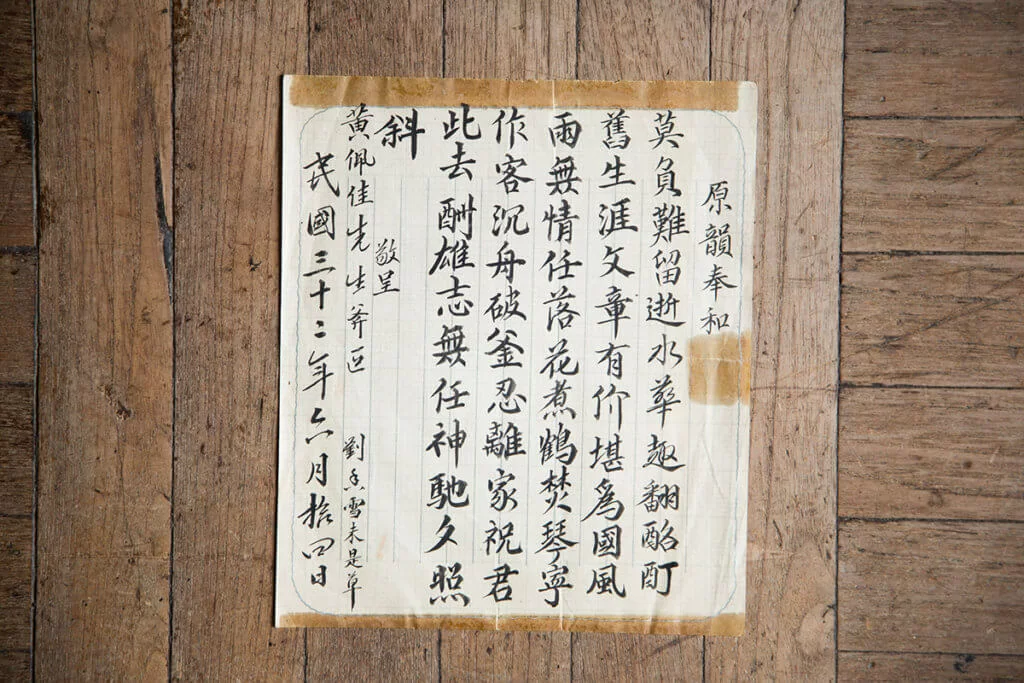 原韻奉和
莫負難留逝水華趣翻酩酊
舊生涯文章有价堪為國風
雨無情任落花煮鶴焚琴寧
作客沉舟破釜忍離家祝君
此去酬雄志無任神馳夕照
斜
敬呈
黃佩佳先生斧正
劉香雪未是草
民國三十二年六月拾四日